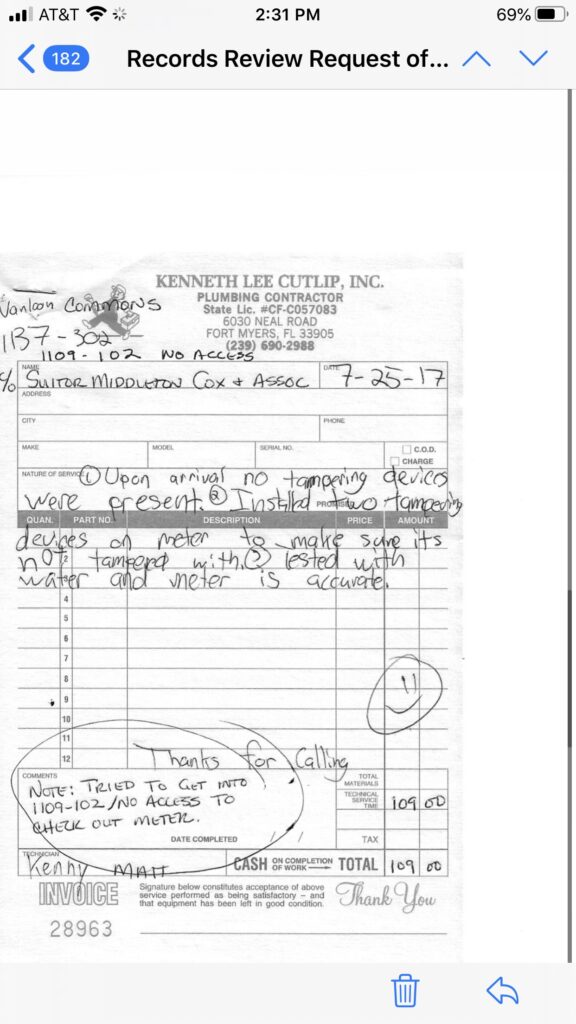 AT&T 2:31 PM 69%
182 Records Review Request of...
KENNETH LEE CUTLIP, INC.
PLUMBING CONTRACTOR
State Lic. #CF-C057083
6030 NEAL ROAD
FORT MYERS, FL 33905
(239) 690-2988
Vanloon Commons
1137-302
1109-102 NO ACCESS
NAME
% SUITOR MIDDLETON COX & ASSOC
DATE 7-25-17
ADDRESS
CITY PHONE
MAKE MODEL SERIAL NO. C.O.D.
CHARGE
NATURE OF SERVICE ① Upon arrival no tampering devices
were present. ② Installd two tampering
PROMISED
QUAN. PART NO. DESCRIPTION PRICE AMOUNT
devices on meter to make sure its
2 not tampered with. ③ Tested with
water and meter is accurate.
4
5
6
7
8
9
10
11
12 Thanks for Calling
COMMENTS
NOTE: TRIED TO GET INTO
1109-102/NO ACCESS TO
CHECK OUT METER.
TOTAL MATERIALS
TECHNICAL SERVICE TIME 109 00
DATE COMPLETED / /
TAX
TECHNICIAN
Kenny MATT
CASH ON COMPLETION OF WORK TOTAL 109 00
INVOICE
28963
Signature below constitutes acceptance of above
service performed as being satisfactory – and
that equipment has been left in good condition.
Thank You